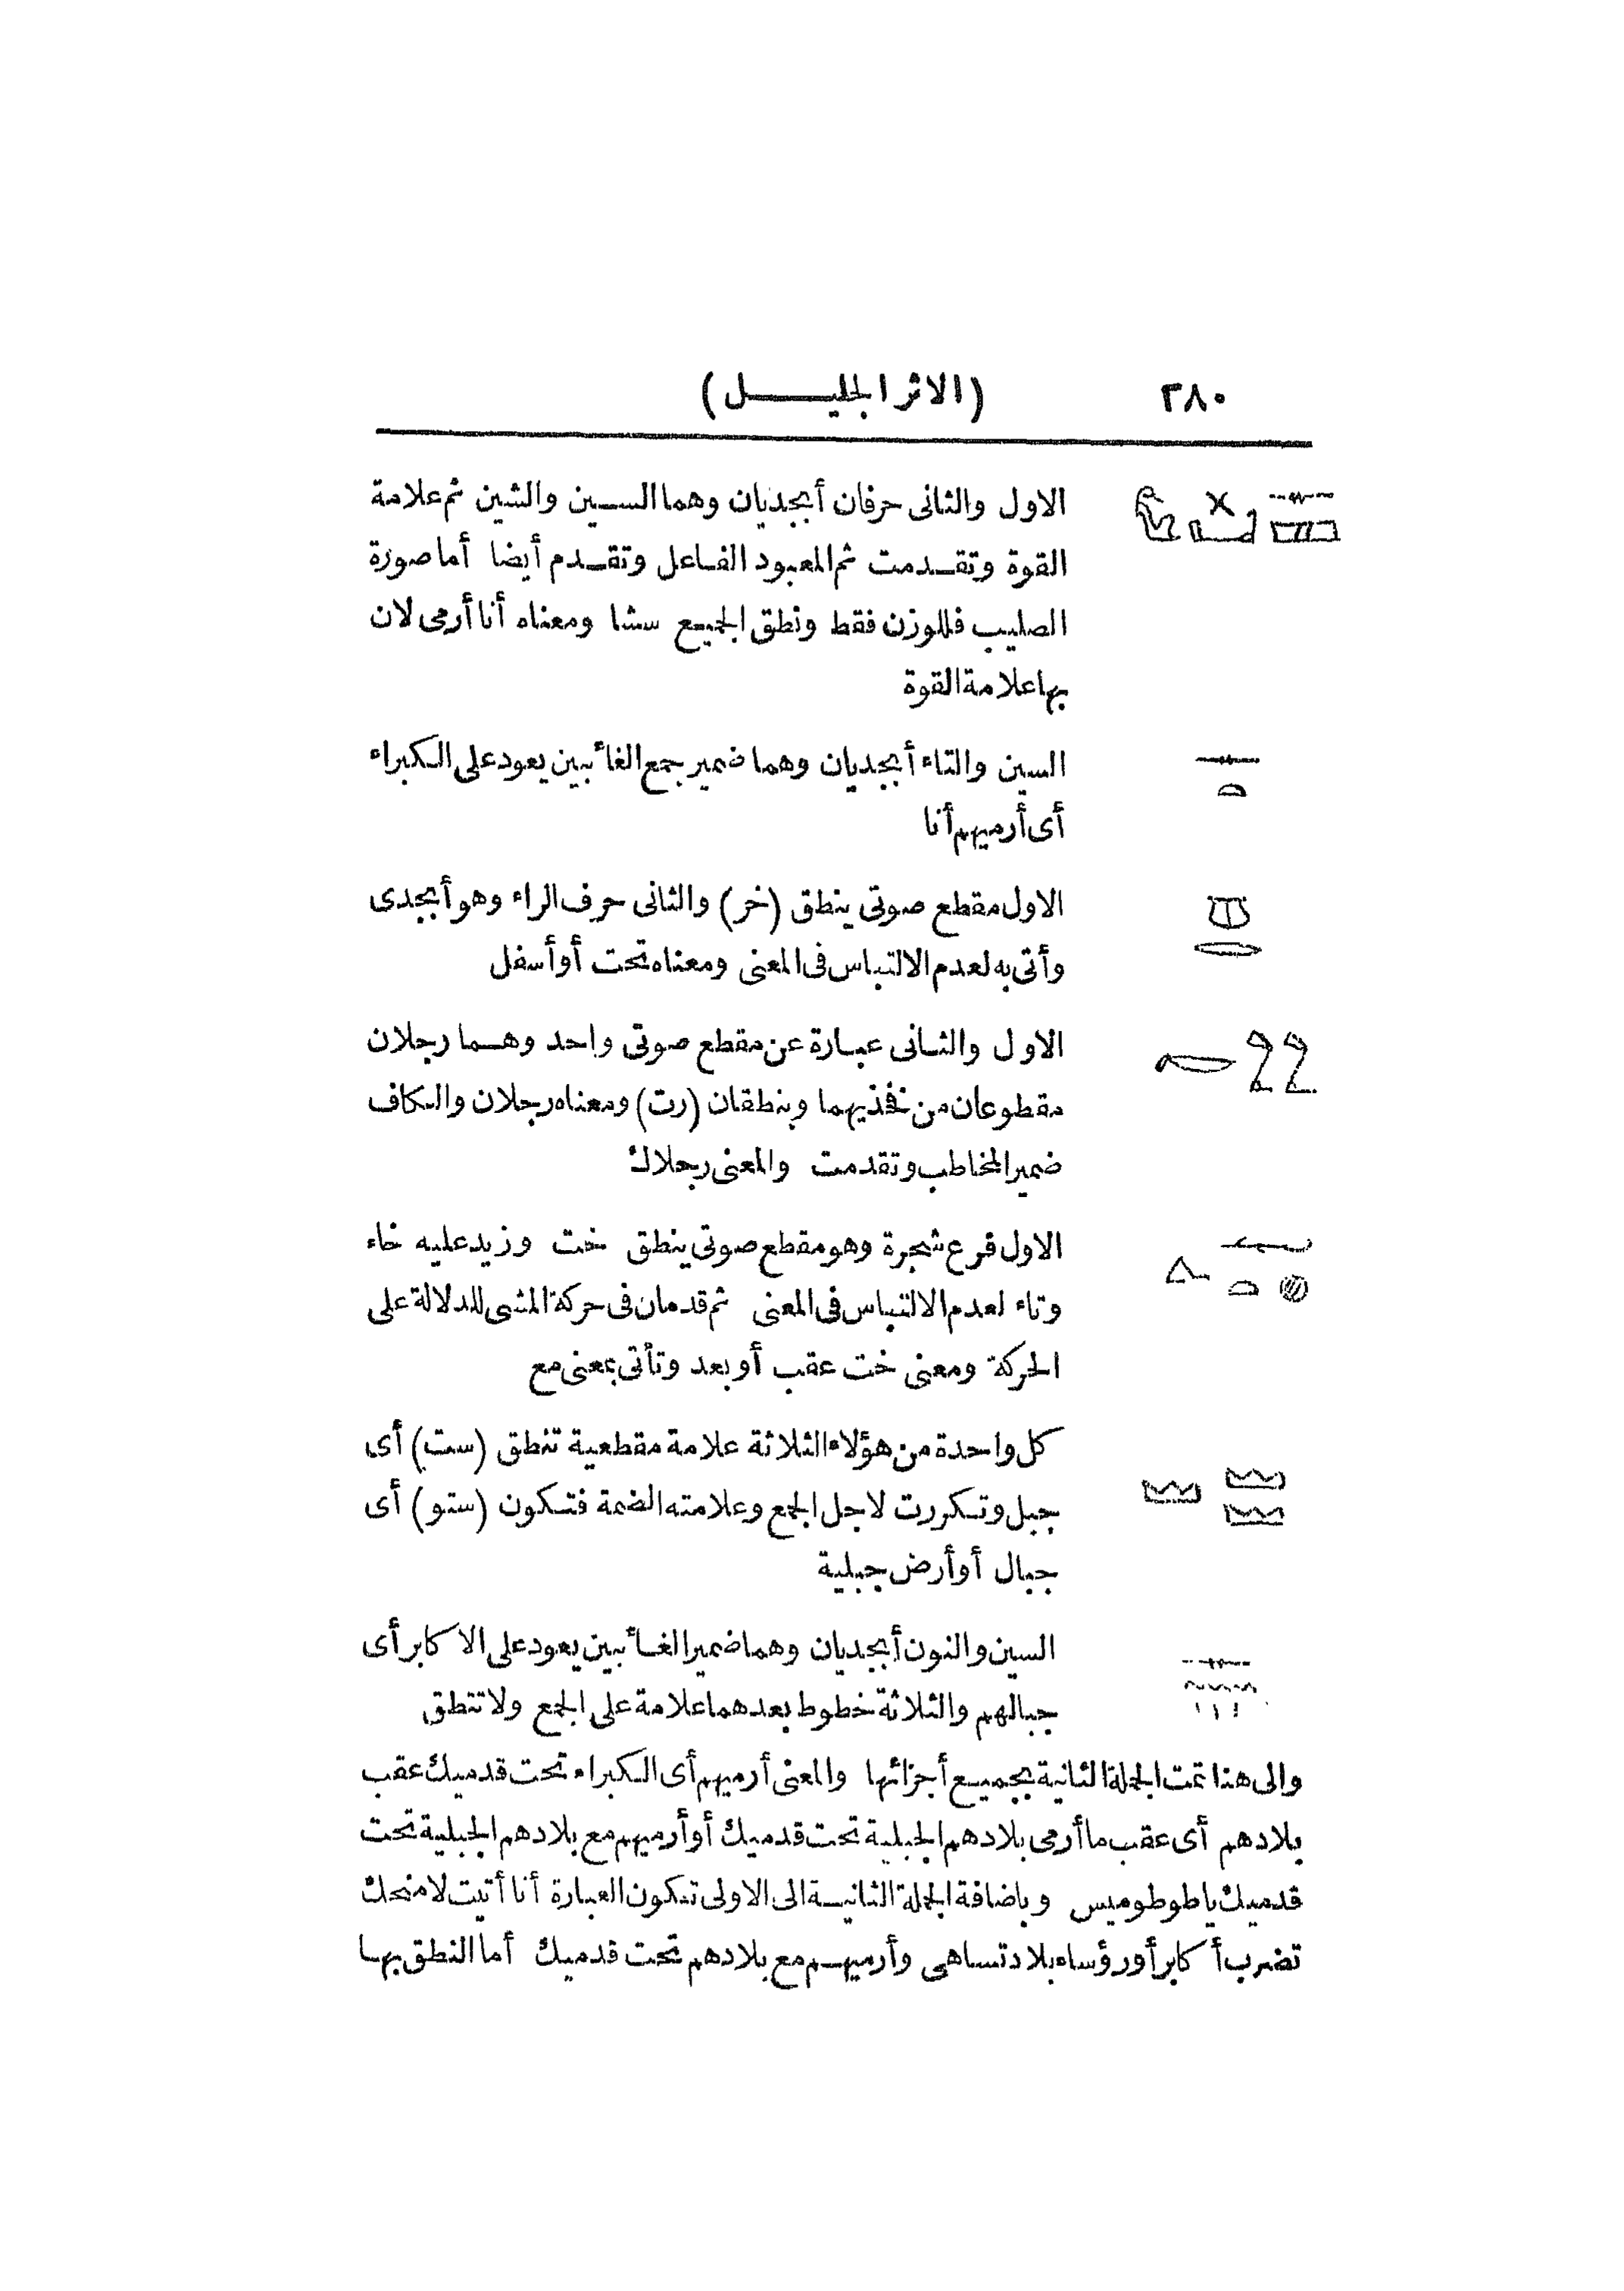 ٢٨٠ (الاثر الجليل)
الاول والثانى حرفان أبجديان وهما السين والشين ثم علامة
القوة وتقدمت ثم المعبود الفاعل وتقدم أيضا أما صورة
الصليب فللوزن فقط ونطق الجميع سشا ومعناه أنا أرمى لان
بها علامة القوة
السين والتاء أبجديان وهما ضمير جمع الغائبين يعود على الكبراء
أى أرميهم أنا
الاول مقطع صوتى ينطق (خر) والثانى حرف الراء وهو أبجدى
وأتى به لعدم الالتباس فى المعنى ومعناه تحت أو أسفل
الاول والثانى عبارة عن مقطع صوتى واحد وهما رجلان
مقطوعان من نخذيهما وينطقان (رت) ومعناه رجلان والكاف
ضمير المخاطب وتقدمت والمعنى رجلاك
الاول فرع شجرة وهو مقطع صوتى ينطق خت وزيد عليه خاء
وتاء لعدم الالتباس فى المعنى ثم قدمان فى حركة المشى للدلالة على
الحركة ومعنى خت عقب أو بعد وتأتى بمعنى مع
كل واحدة من هؤلاء الثلاثة علامة مقطعية تنطق (ست) أى
جبل وتكررت لاجل الجمع وعلامته الضمة فتكون (ستو) أى
جبال أو أرض جبلية
السين والنون أبجديان وهما ضمير الغائبين يعود على الاكابر أى
جبالهم والثلاثة خطوط بعدهما علامة على الجمع ولا تنطق
والى هنا تمت الجملة الثانية بجميع أجزائها والمعنى أرميهم أى الكبراء تحت قدميك عقب
بلادهم أى عقب ما أرمى بلادهم الجبلية تحت قدميك أو أرميهم مع بلادهم الجبلية تحت
قدميك يا طوطوميس وباضافة الجملة الثانية الى الاولى تكون العبارة أنا أتيت لامنحك
تضرب أكابر أو رؤساء بلاد تساهى وأرميهم مع بلادهم تحت قدميك أما النطق بها